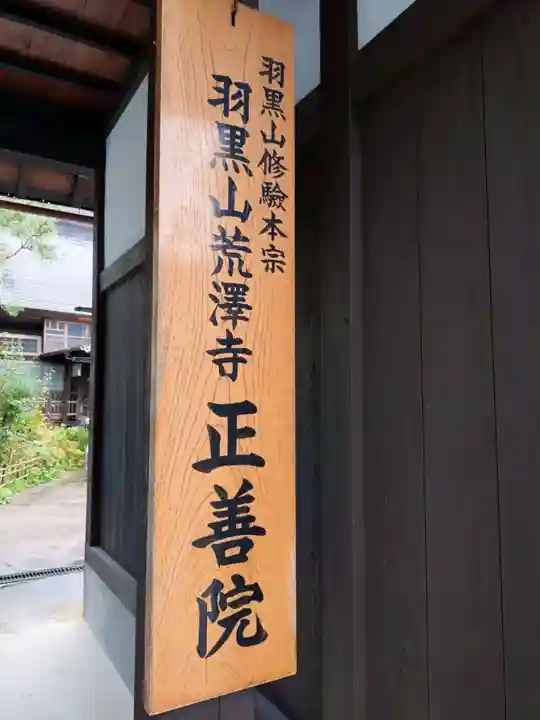 羽黒山修驗本宗
羽黒山荒澤寺正善院